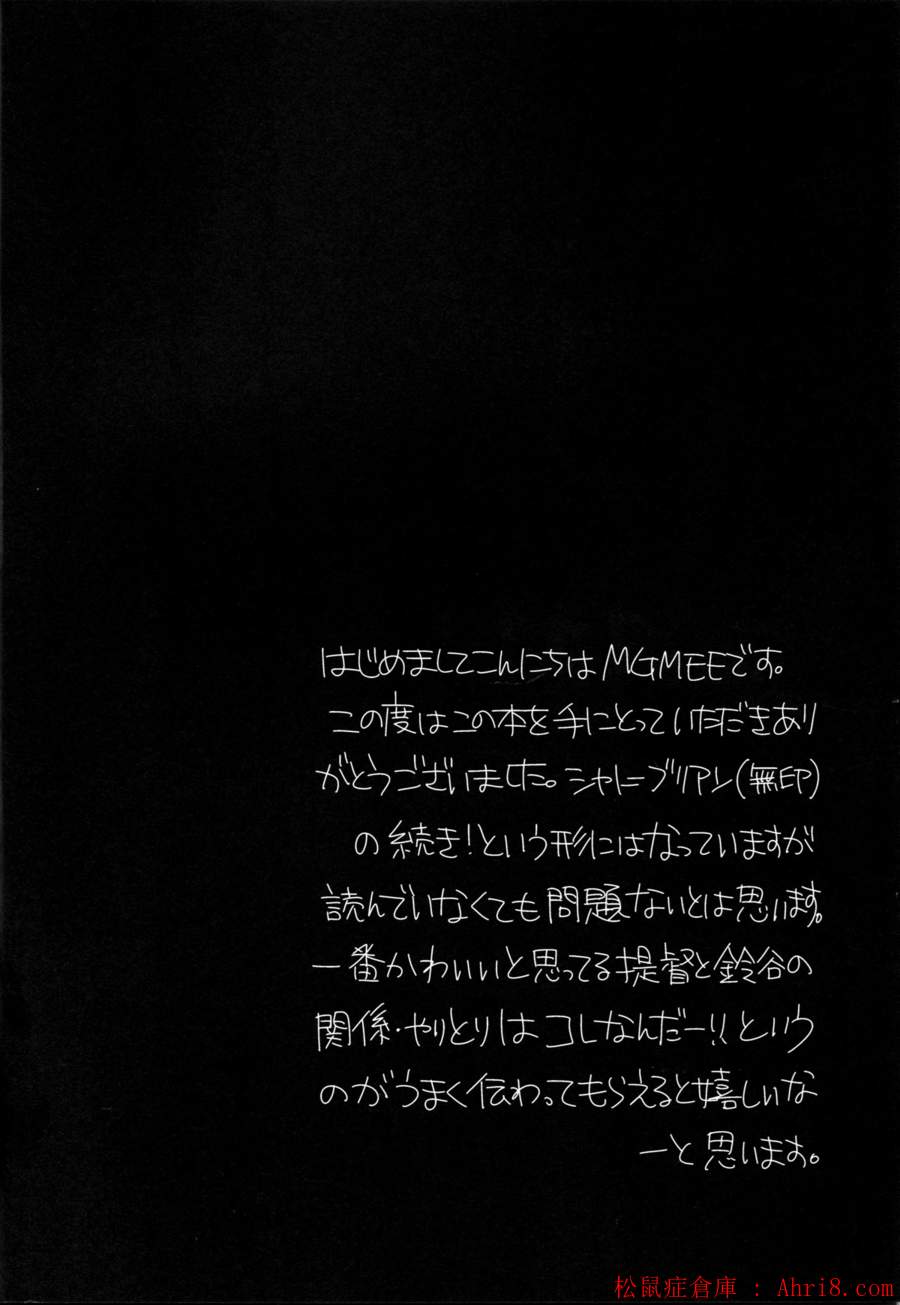 はじめましてこんにちはMGMEEです。
この度はこの本を手にとっていただきあり
がとうございました。シャトーブリアン(無印)
の続き!という形にはなっていますが
読んでいなくても問題ないとは思います。
一番かわいいと思ってる提督と鈴谷の
関係・やりとりはコレなんだー!!という
のがうまく伝わってもらえると嬉しいな
ーと思います。
松鼠症倉庫 : Ahri8.com